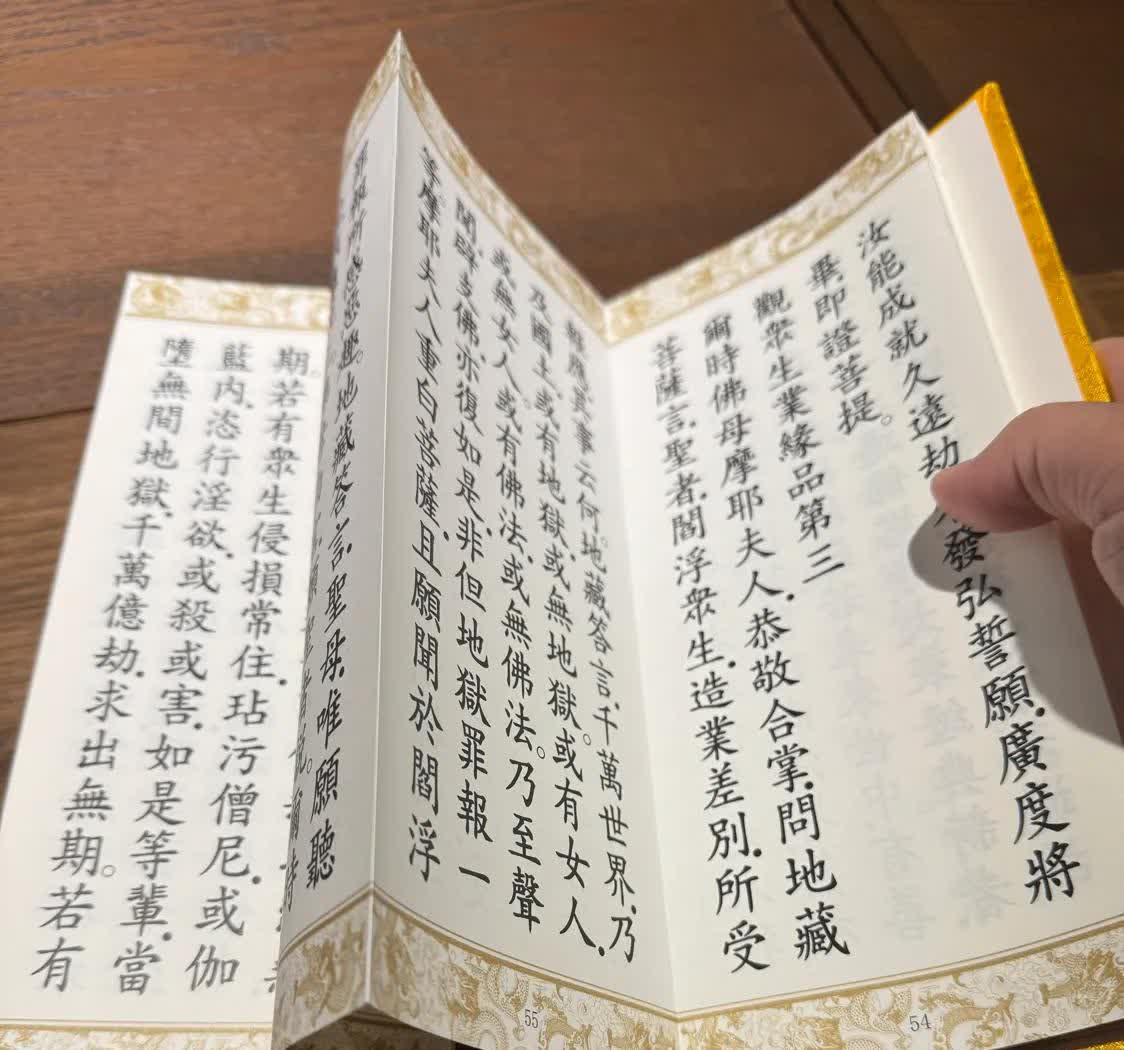 汝能成就久遠劫發弘誓願.廣度將
畢即證菩提。
觀眾生業緣品第三
爾時佛母摩耶夫人.恭敬合掌.問地藏
菩薩言.聖者.閻浮眾生.造業差別.所受
54
報應.其事云何。地藏答言.千萬世界.乃
及國土.或有地獄.或無地獄。或有女人.
或無女人。或有佛法.或無佛法。乃至聲
聞辟支佛.亦復如是.非但地獄罪報一
等.摩耶夫人重白菩薩.且願聞於閻浮
55
罪報所感惡趣。地藏答言.聖母.唯願聽
願聖者說。爾時
期。若有眾生侵損常住.玷污僧尼.或伽
藍內.恣行淫欲.或殺或害.如是等輩.當
墮無間地獄.千萬億劫.求出無期。若有